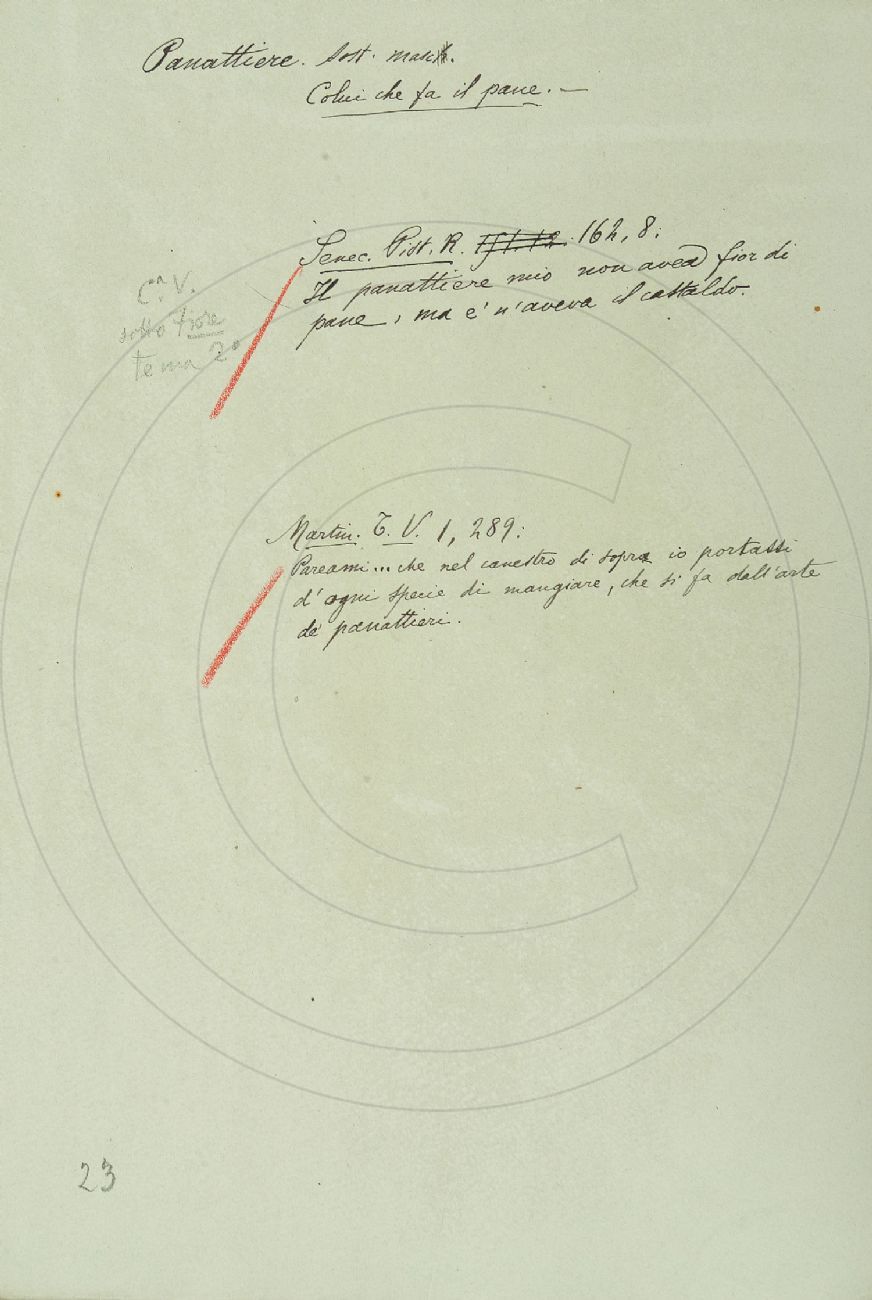 Panattiere. Sost. masc.
Colui che fa il pane. —
Senec. Pist. R. 162, 8:
Il panattiere mio non avea fior di
pane, ma e' n'aveva il castaldo.
C.ª V.
sotto fiore
tema 2º
Martin. T. V. 1, 289:
Pareami... che nel canestro di sopra io portassi
d'ogni specie di mangiare, che si fa dall'arte
de' panattieri.
23